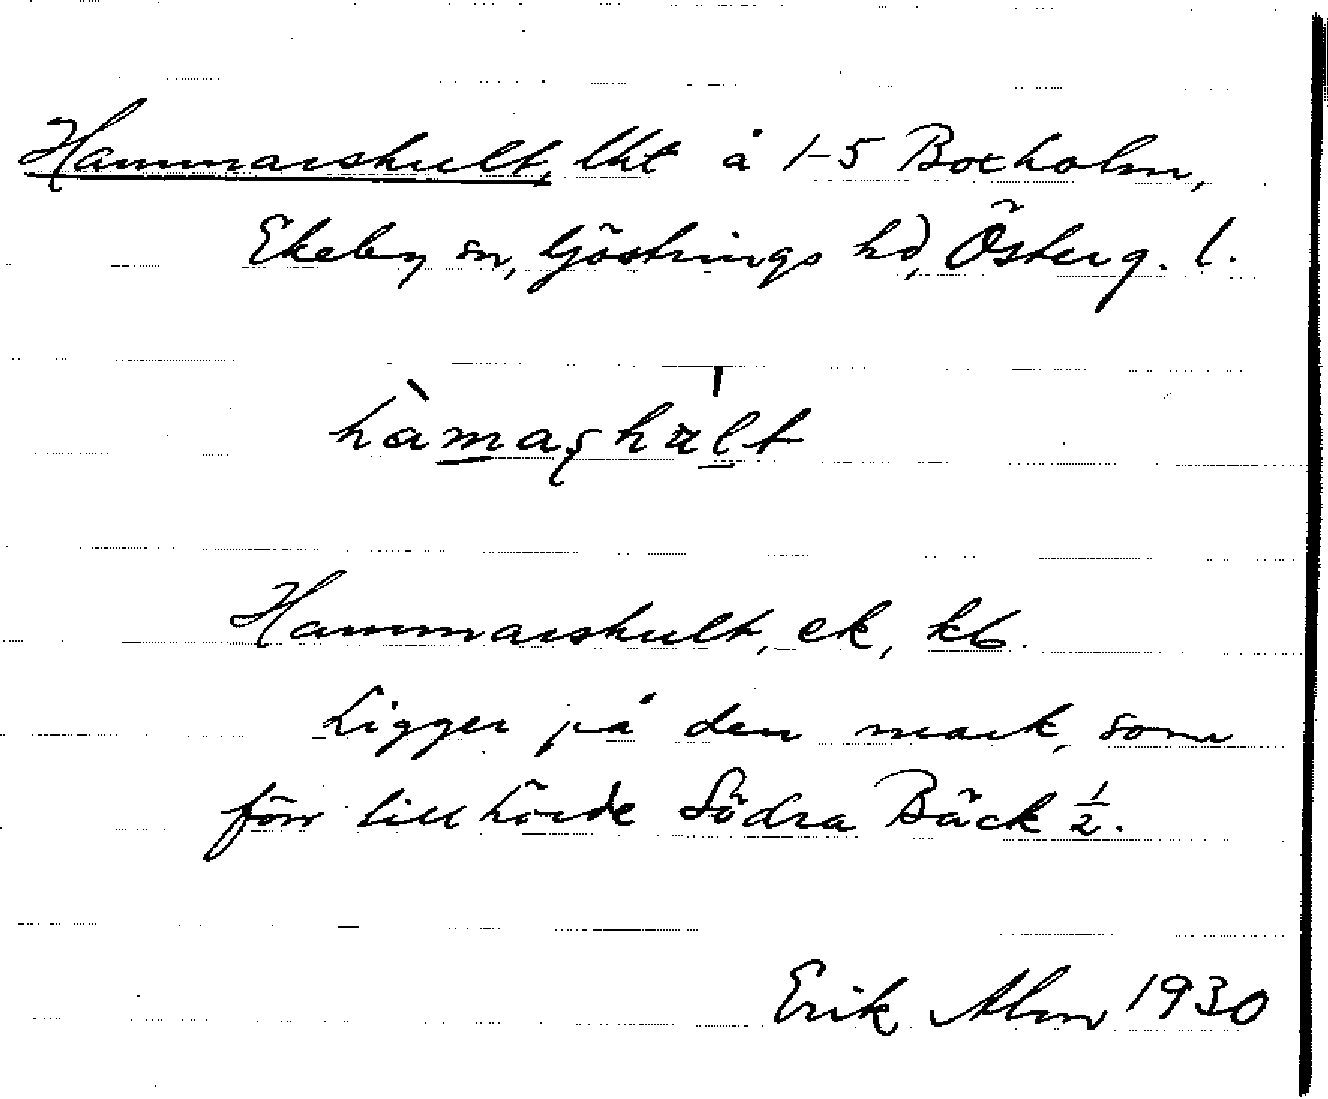 Hammarshult, lht å 1-5 Boxholm,
Ekeby sn, Göstrings hd, Österg. l.
hàmaʂhult
Hammarshult, ek, kb.
Ligger på den mark, som
förr tillhörde Södra Bäck ½.
Erik Alm 1930